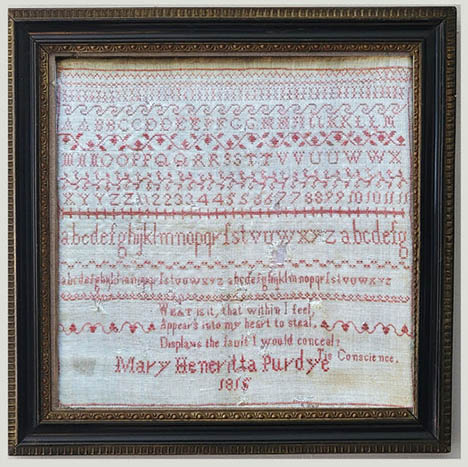 A A B B C C D D E E F F G G H H I I K K L L M
M N N O O P P Q Q R R S S T T V V U U W W X
X Y Y Z Z 1 1 2 2 3 3 4 4 5 5 6 6 7 7 8 8 9 9 10 10 11 11
abcdefghijklmnopqrſstvuwxyz abcdefg
abcdefghijklmnopqrſstvuwxyz abcdefghijklmnopqrſstvuwxyz
What is it, that within I feel,
Appears into my heart to steal,
Displays the fault I would conceal?
Tis Conscience.
Mary Heneritta Purdye
1815